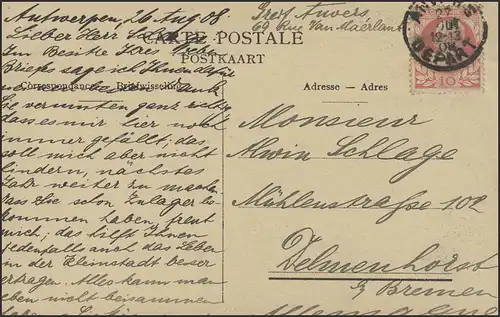 Antwerpen, 26 Aug 08.
Lieber Herr
Im Besitze Ihres
Briefes sage ich Ihnen dafür
Sie vermuten ganz richtig
dass es mir hier noch
immer gefällt; das
soll mich aber nicht
hindern, nächstes
Jahr weiter zu
dass Sie schon
kommen haben, freut
mich; das hilft Ihnen
jedenfalls auch das Leben
in der Kleinstadt besser
ertragen. Alles kann man
eben nicht beisammen
haben.
Anvers
69 Rue Van Maerlant
CARTE POSTALE
POSTKAART
Correspondance Briefwisseling
Adresse – Adres
DEPART
10
Monsieur
Alwin Schlage
Mühlenstrasse 102
Delmenhorst
b/ Bremen
Allemagne